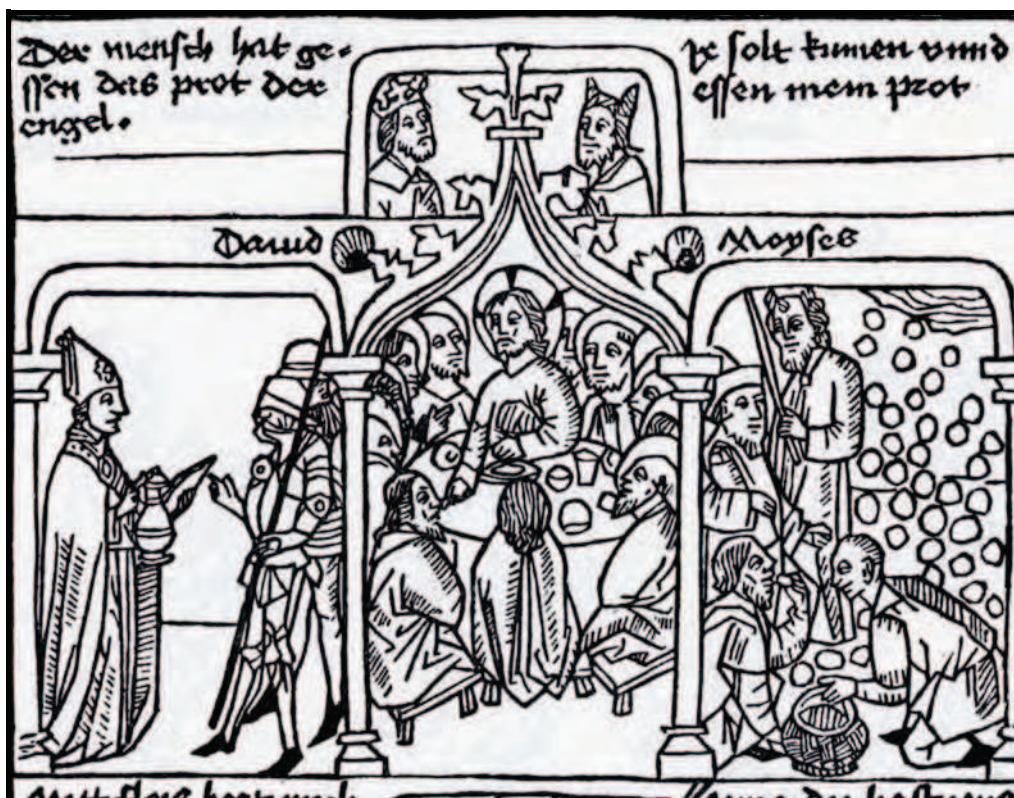 Der mensch hat ge-
ssen das prot der
engel.
ir solt kumen vnnd
essen mein prot
Dauid
Moyses